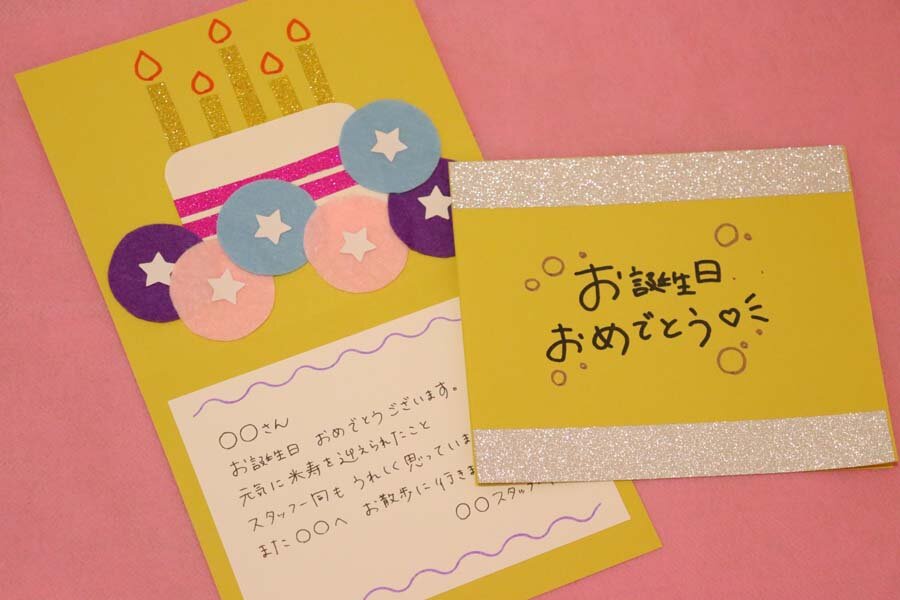 お誕生日
おめでとう♡
〇〇さん
お誕生日 おめでとうございます。
元気に米寿を迎えられたこと
スタッフ一同も うれしく思っていま
また〇〇へ お散歩に行きま
〇〇スタッフ